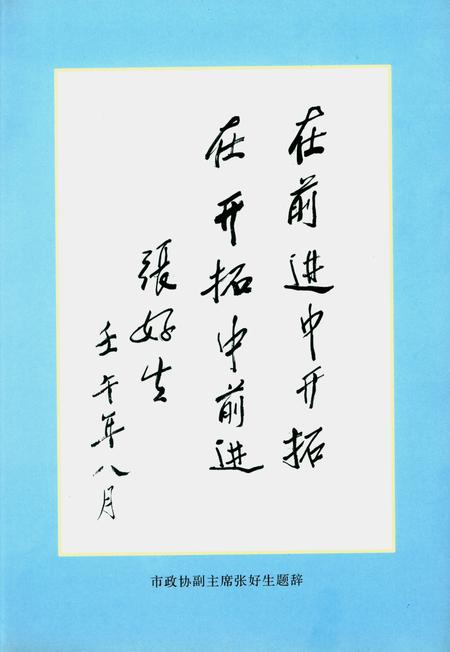 在前进中开拓
在开拓中前进
張好生
壬午年八月
市政协副主席张好生题辞